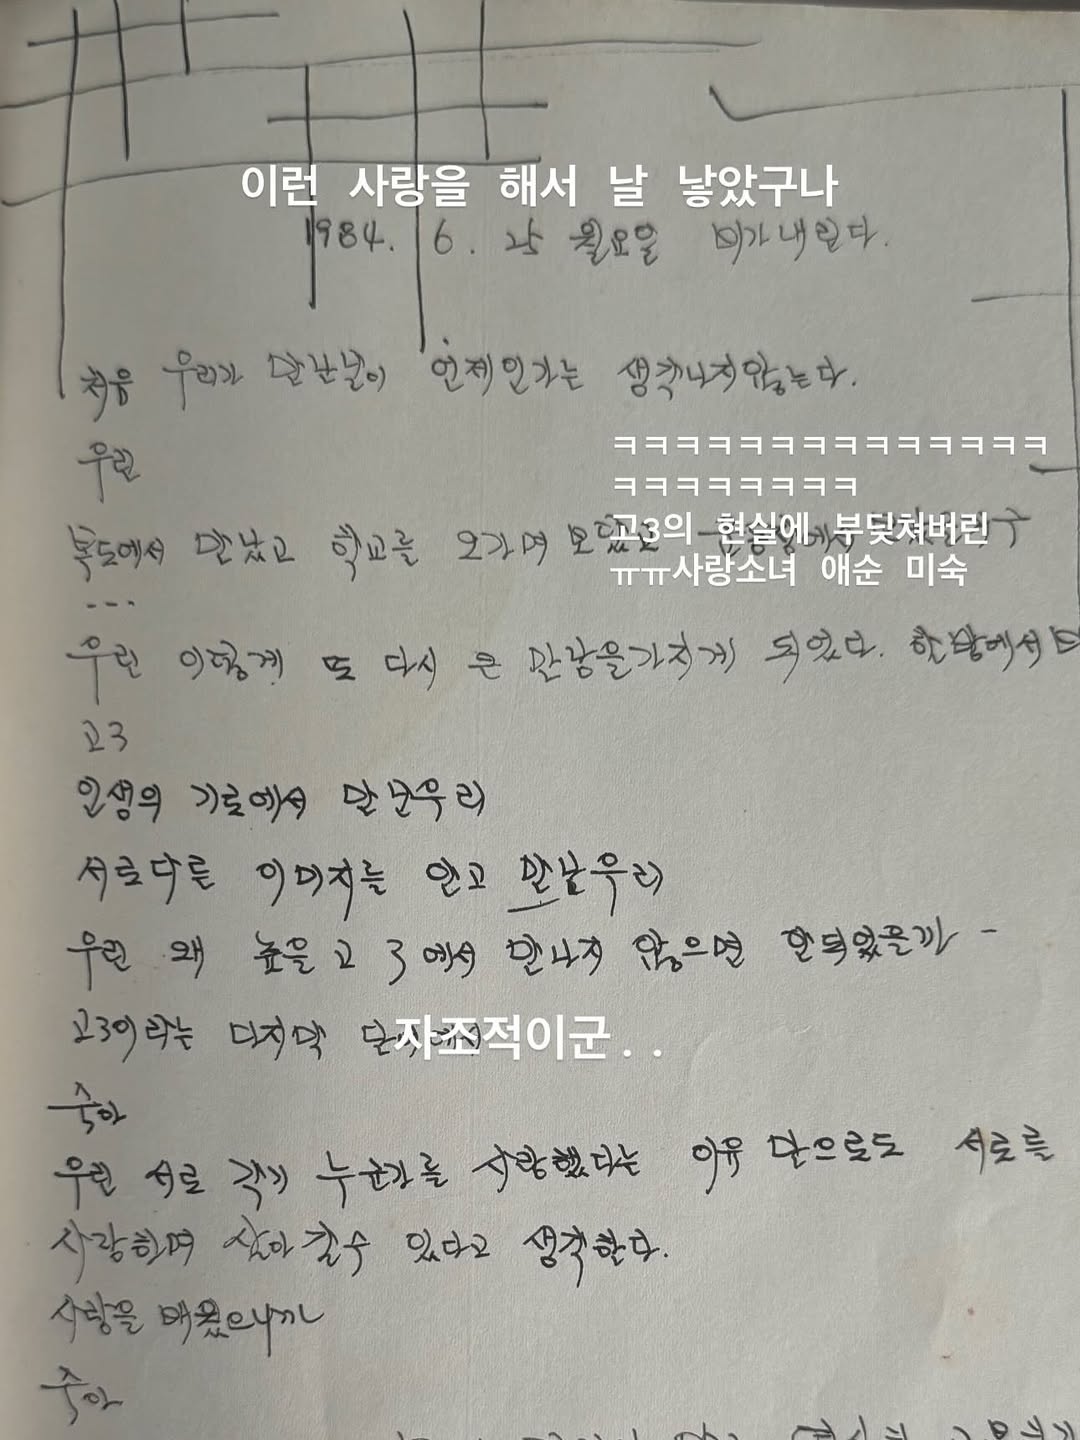 이런 사랑을 해서 날 낳았구나
1984. 6. 25 월요일 비가내린다.
처음 우리가 만난날이 언제인가는 생각나지않는다.
우린
ㅋㅋㅋㅋㅋㅋㅋㅋㅋㅋㅋㅋㅋㅋ
ㅋㅋㅋㅋㅋㅋㅋㅋ
복도에서 만났고 학교를 오가며
고3의 현실에 부딪쳐버린
ㅠㅠ사랑소녀 애순 미숙
...
우린 이렇게 또 다시 큰 만남을가지게 되었다. 한밤에서
고3
인생의 기로에서 만난우리
서로다른 이미지를 안고 만난우리
우린 왜 높은고 3에서 만나지 않으면 안되었을까 -
고3이라는 마지막
자조적이군..
숙아
우린 서로 각기 누군가를 사랑했다는 이유 만으로도 서로를
사랑하며 살아갈수 있다고 생각한다.
사랑을 배웠으니까
숙아